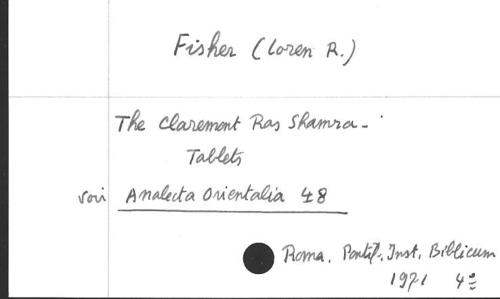 Fisher (Loren R.)
The Claremont Ras Shamra -
Tablets
voir Analecta Orientalia 48
Roma. Pontif. Inst. Biblicum
1971 4°